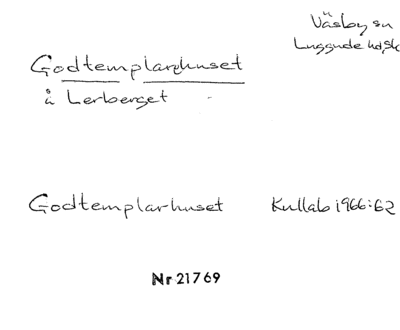 Väsby sn
Luggude hd, Sk
Godtemplarhuset
å Lerberget
Godtemplarhuset Kullab 1966:62
Nr 21769